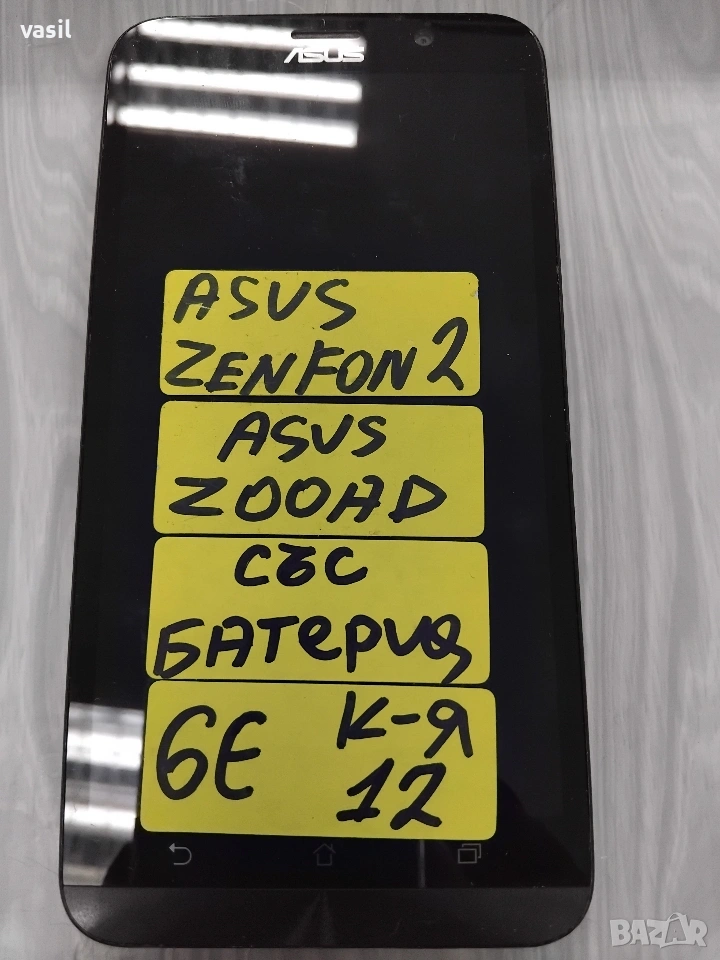 vasil
ASUS
ASUS
ZENFON 2
ASUS
ZOOAD
със
БАТерия
6Е
К-Я
12
BAZAR